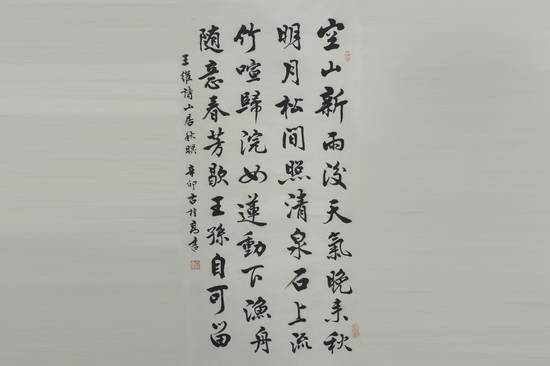 空山新雨後天氣晚来秋
明月松間照清泉石上流
竹喧歸浣女蓮動下漁舟
随意春芳歇王孫自可留
王維詩山居秋暝 辛卯